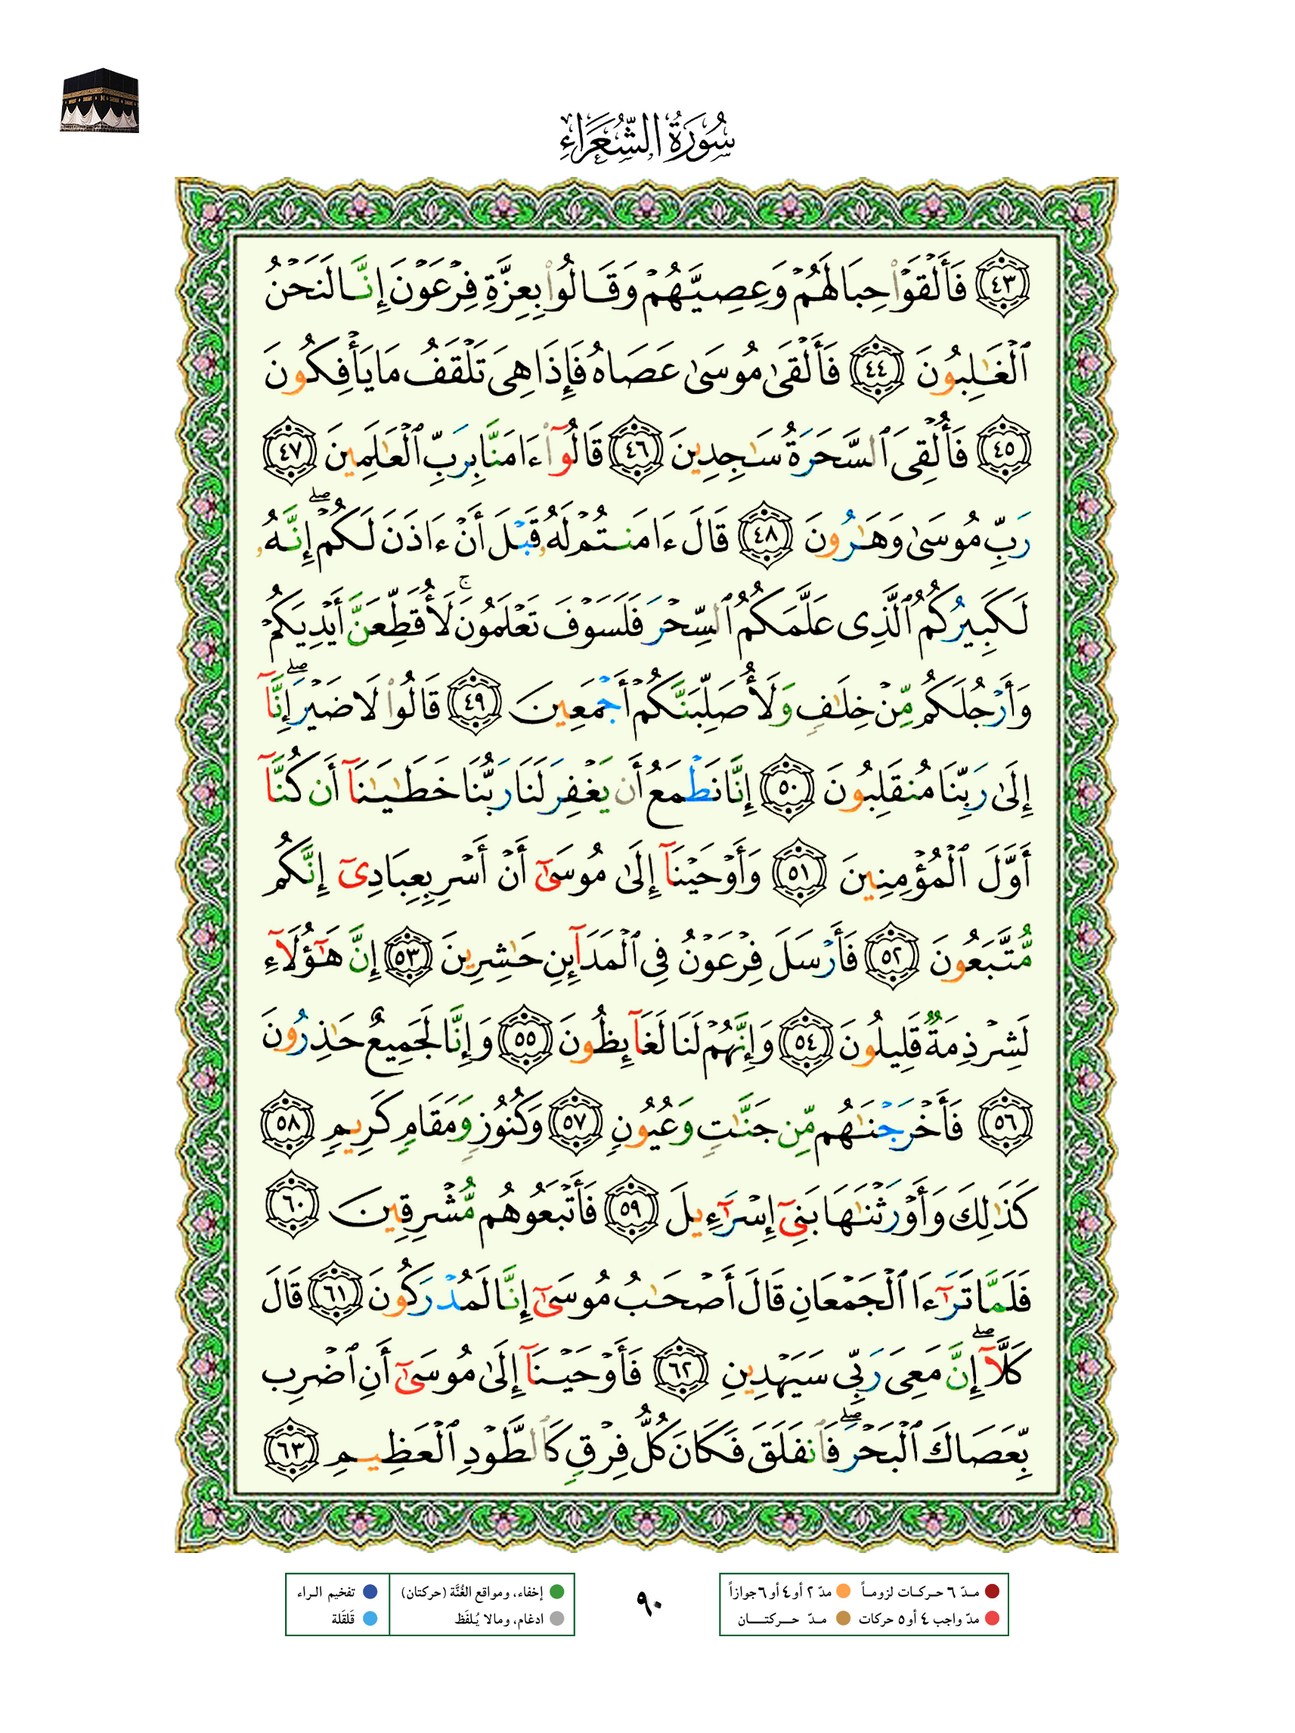 سُورَةُ الشُّعَرَاءِ
﴿٤٣﴾ فَأَلْقَوْا۟ حِبَالَهُمْ وَعِصِيَّهُمْ وَقَالُوا۟ بِعِزَّةِ فِرْعَوْنَ إِنَّا لَنَحْنُ
ٱلْغَـٰلِبُونَ ﴿٤٤﴾ فَأَلْقَىٰ مُوسَىٰ عَصَاهُ فَإِذَا هِىَ تَلْقَفُ مَا يَأْفِكُونَ
﴿٤٥﴾ فَأُلْقِىَ ٱلسَّحَرَةُ سَـٰجِدِينَ ﴿٤٦﴾ قَالُوٓا۟ ءَامَنَّا بِرَبِّ ٱلْعَـٰلَمِينَ ﴿٤٧﴾
رَبِّ مُوسَىٰ وَهَـٰرُونَ ﴿٤٨﴾ قَالَ ءَامَنتُمْ لَهُۥ قَبْلَ أَنْ ءَاذَنَ لَكُمْ ۖ إِنَّهُۥ
لَكَبِيرُكُمُ ٱلَّذِى عَلَّمَكُمُ ٱلسِّحْرَ فَلَسَوْفَ تَعْلَمُونَ ۚ لَأُقَطِّعَنَّ أَيْدِيَكُمْ
وَأَرْجُلَكُم مِّنْ خِلَـٰفٍ وَلَأُصَلِّبَنَّكُمْ أَجْمَعِينَ ﴿٤٩﴾ قَالُوا۟ لَا ضَيْرَ ۖ إِنَّآ
إِلَىٰ رَبِّنَا مُنقَلِبُونَ ﴿٥٠﴾ إِنَّا نَطْمَعُ أَن يَغْفِرَ لَنَا رَبُّنَا خَطَـٰيَـٰنَآ أَن كُنَّآ
أَوَّلَ ٱلْمُؤْمِنِينَ ﴿٥١﴾ وَأَوْحَيْنَآ إِلَىٰ مُوسَىٰٓ أَنْ أَسْرِ بِعِبَادِىٓ إِنَّكُم
مُّتَّبَعُونَ ﴿٥٢﴾ فَأَرْسَلَ فِرْعَوْنُ فِى ٱلْمَدَآئِنِ حَـٰشِرِينَ ﴿٥٣﴾ إِنَّ هَـٰٓؤُلَآءِ
لَشِرْذِمَةٌ قَلِيلُونَ ﴿٥٤﴾ وَإِنَّهُمْ لَنَا لَغَآئِظُونَ ﴿٥٥﴾ وَإِنَّا لَجَمِيعٌ حَـٰذِرُونَ
﴿٥٦﴾ فَأَخْرَجْنَـٰهُم مِّن جَنَّـٰتٍ وَعُيُونٍ ﴿٥٧﴾ وَكُنُوزٍ وَمَقَامٍ كَرِيمٍ ﴿٥٨﴾
كَذَٰلِكَ وَأَوْرَثْنَـٰهَا بَنِىٓ إِسْرَٰٓءِيلَ ﴿٥٩﴾ فَأَتْبَعُوهُم مُّشْرِقِينَ ﴿٦٠﴾
فَلَمَّا تَرَٰٓءَا ٱلْجَمْعَانِ قَالَ أَصْحَـٰبُ مُوسَىٰٓ إِنَّا لَمُدْرَكُونَ ﴿٦١﴾ قَالَ
كَلَّآ ۖ إِنَّ مَعِىَ رَبِّى سَيَهْدِينِ ﴿٦٢﴾ فَأَوْحَيْنَآ إِلَىٰ مُوسَىٰٓ أَنِ ٱضْرِب
بِّعَصَاكَ ٱلْبَحْرَ ۖ فَٱنفَلَقَ فَكَانَ كُلُّ فِرْقٍ كَٱلطَّوْدِ ٱلْعَظِيمِ ﴿٦٣﴾
مدّ ٦ حركات لزوماً مدّ ٢ أو ٤ أو ٦ جوازاً
مدّ واجب ٤ أو ٥ حركات مدّ حركتان
٩٠
إخفاء، ومواقع الغُنَّة (حركتان) تفخيم الراء
ادغام، ومالا يُلفَظ قَلقَلة